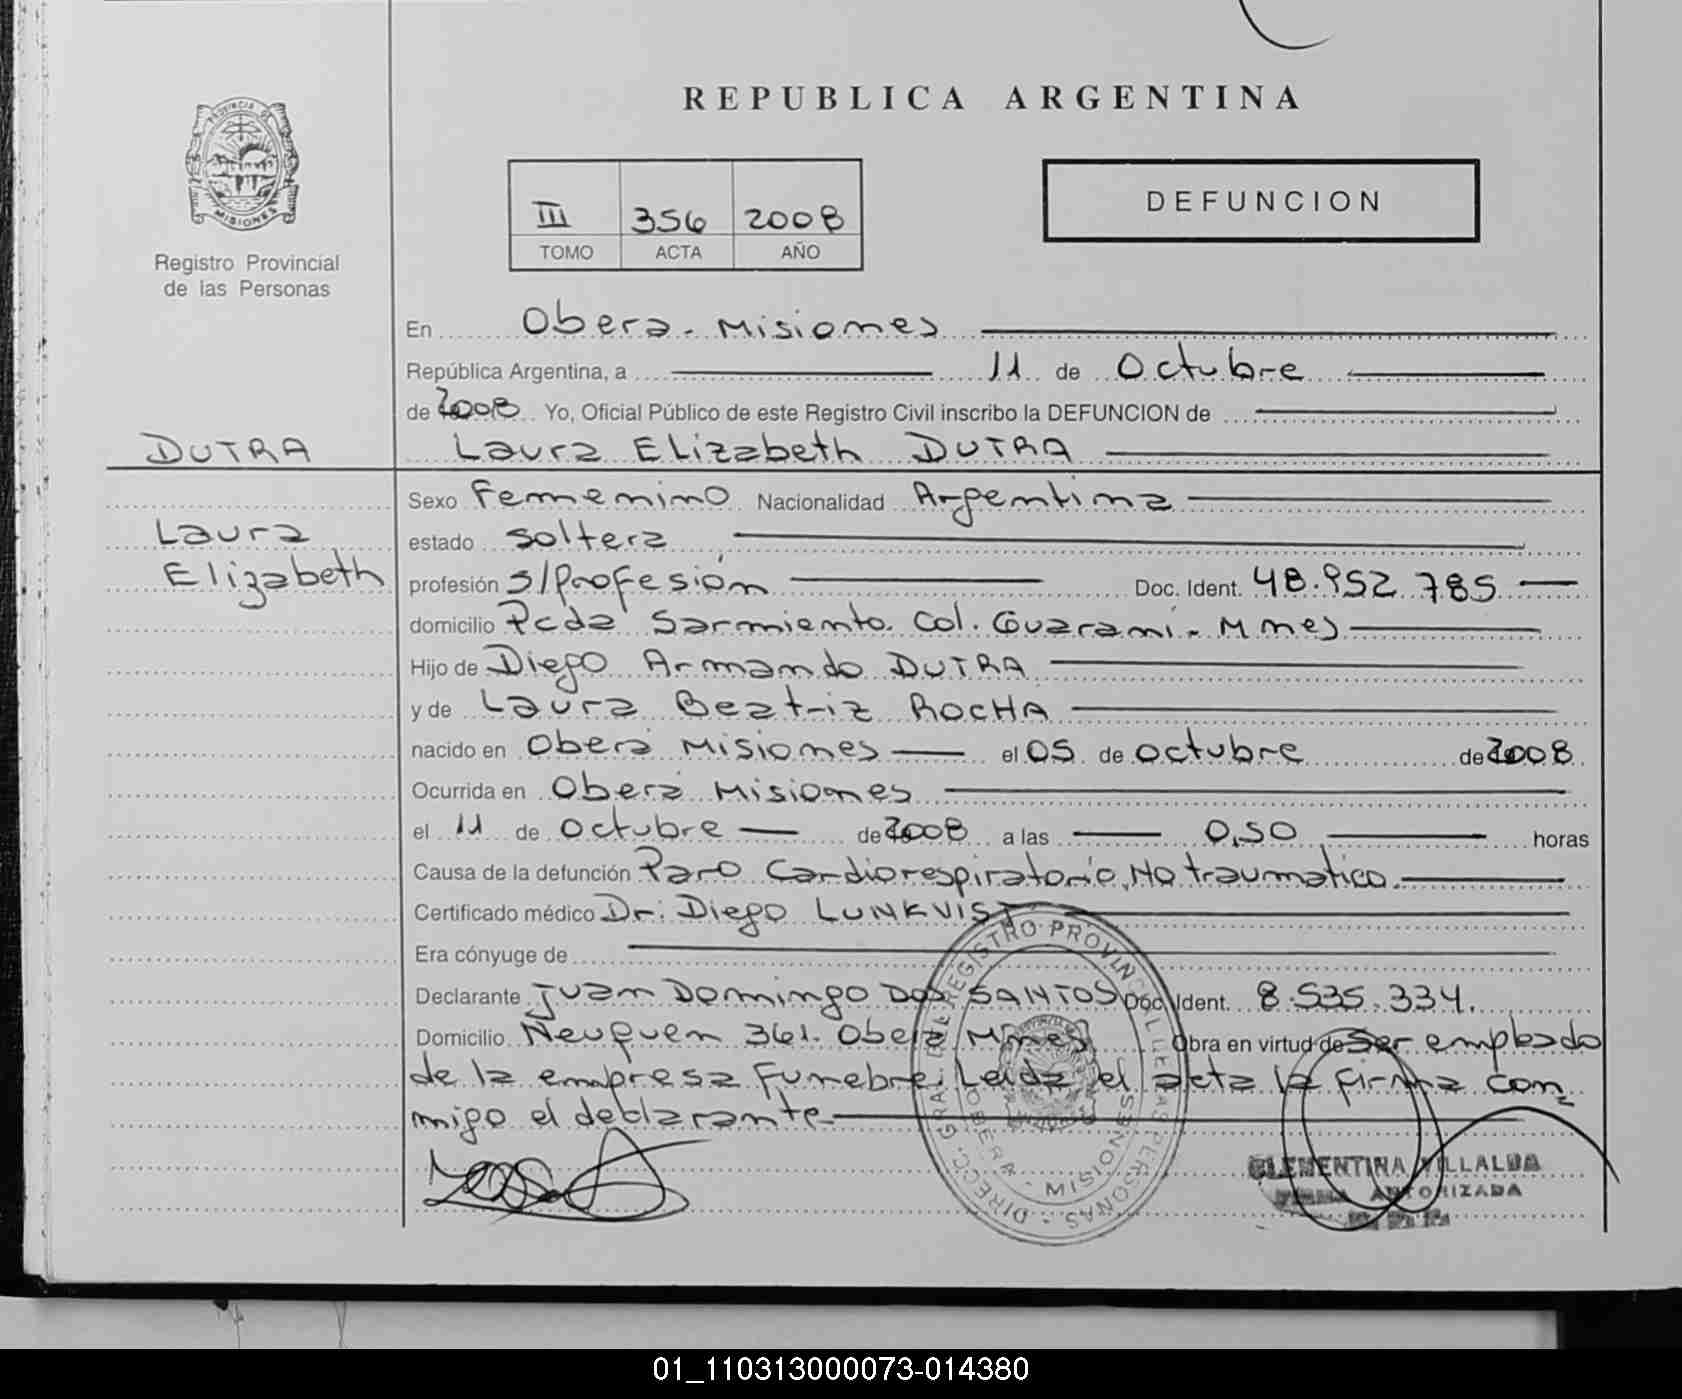 REPUBLICA ARGENTINA
PROVINCIA DE MISIONES
Registro Provincial
de las Personas
III 356 2008
TOMO ACTA AÑO
DEFUNCION
En Obera - Misiones
República Argentina, a 11 de Octubre
de 2008 Yo, Oficial Público de este Registro Civil inscribo la DEFUNCION de
DUTRA Laura Elizabeth DUTRA
Sexo Femenino Nacionalidad Argentina
Laura
estado soltera
Elizabeth
profesión s/profesión Doc. Ident. 48.952.785
domicilio Pcda Sarmiento. Col. Guaraní - Mnes
Hijo de Diego Armando DUTRA
y de Laura Beatriz ROCHA
nacido en Oberá Misiones el 05 de octubre de 2008
Ocurrida en Oberá Misiones
el 11 de Octubre de 2008 a las 0,50 horas
Causa de la defunción Paro Cardiorespiratorio, No traumatico.
Certificado médico Dr. Diego LUNKVIST
Era cónyuge de
Declarante Juan Domingo DOS SANTOS Doc. Ident. 8.535.334.
Domicilio Neuquen 361. Obera Mnes Obra en virtud de Ser empleado
de la empresa Funebre. Leida el acta la firma con
migo el declarante
DIRECC. GRAL. DEL REGISTRO PROVINCIAL DE LAS PERSONAS
OBERA - MISIONES
CLEMENTINA VILLALBA
FIRMA AUTORIZADA
01_110313000073-014380